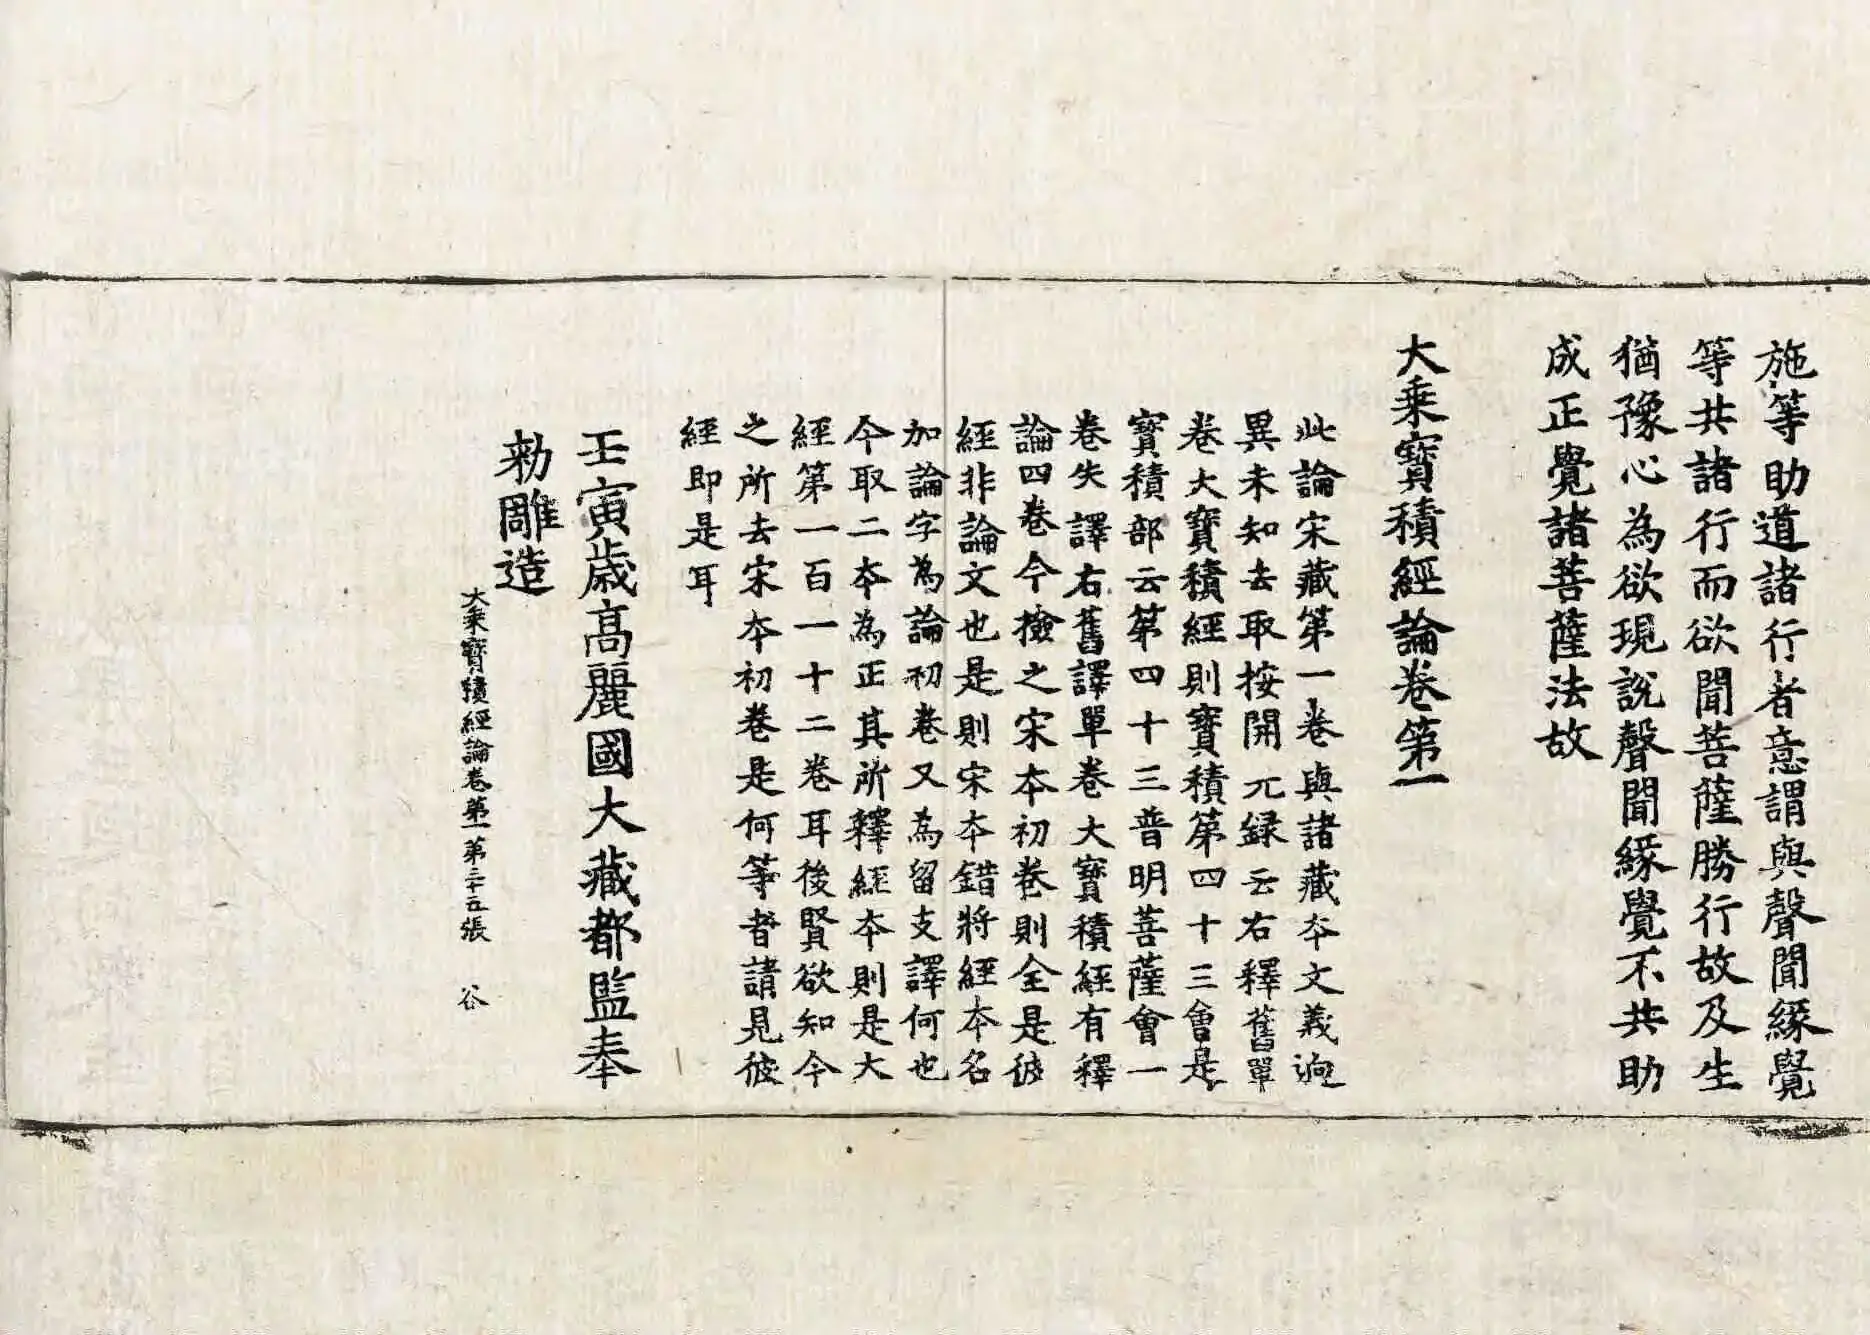 施等助道諸行者意謂與聲聞緣覺
等共諸行而欲聞菩薩勝行故及生
猶豫心為欲現說聲聞緣覺不共助
成正覺諸菩薩法故
大乘寶積經論卷第一
此論宋藏第一卷與諸藏夲文義逈
異未知去取按開元録云右釋舊單
卷大寶積經則寶積第四十三會是
寶積部云第四十三普明菩薩會一
卷失譯右舊譯單卷大寶積經有釋
論四卷今撿之宋夲初卷則全是彼
經非論文也是則宋夲錯將經夲名
加論字為論初卷又為留支譯何也
今取二夲為正其所釋經夲則是大
經第一百一十二卷耳後賢欲知今
之所去宋夲初卷是何等者請見彼
經即是耳
壬寅歲高麗國大藏都監奉
勑雕造
大乘寶積經論卷第一 第二十五張 谷